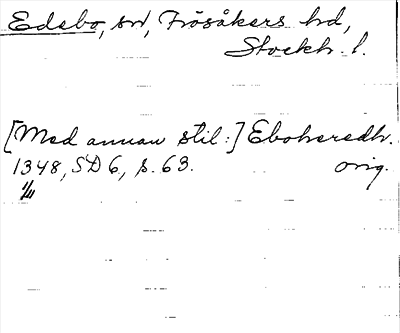 Edebo, sn, Frösåkers hd,
Stockh. l.
[Med annan stil:] Eboheredh.
1348, SD 6, s. 63. orig.
1/11